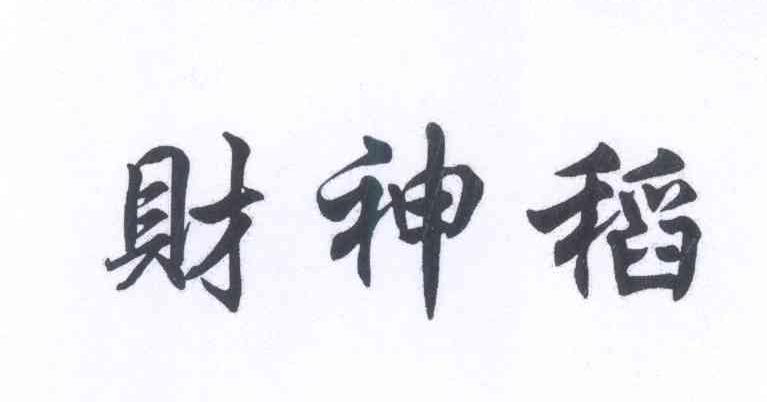 財神稻